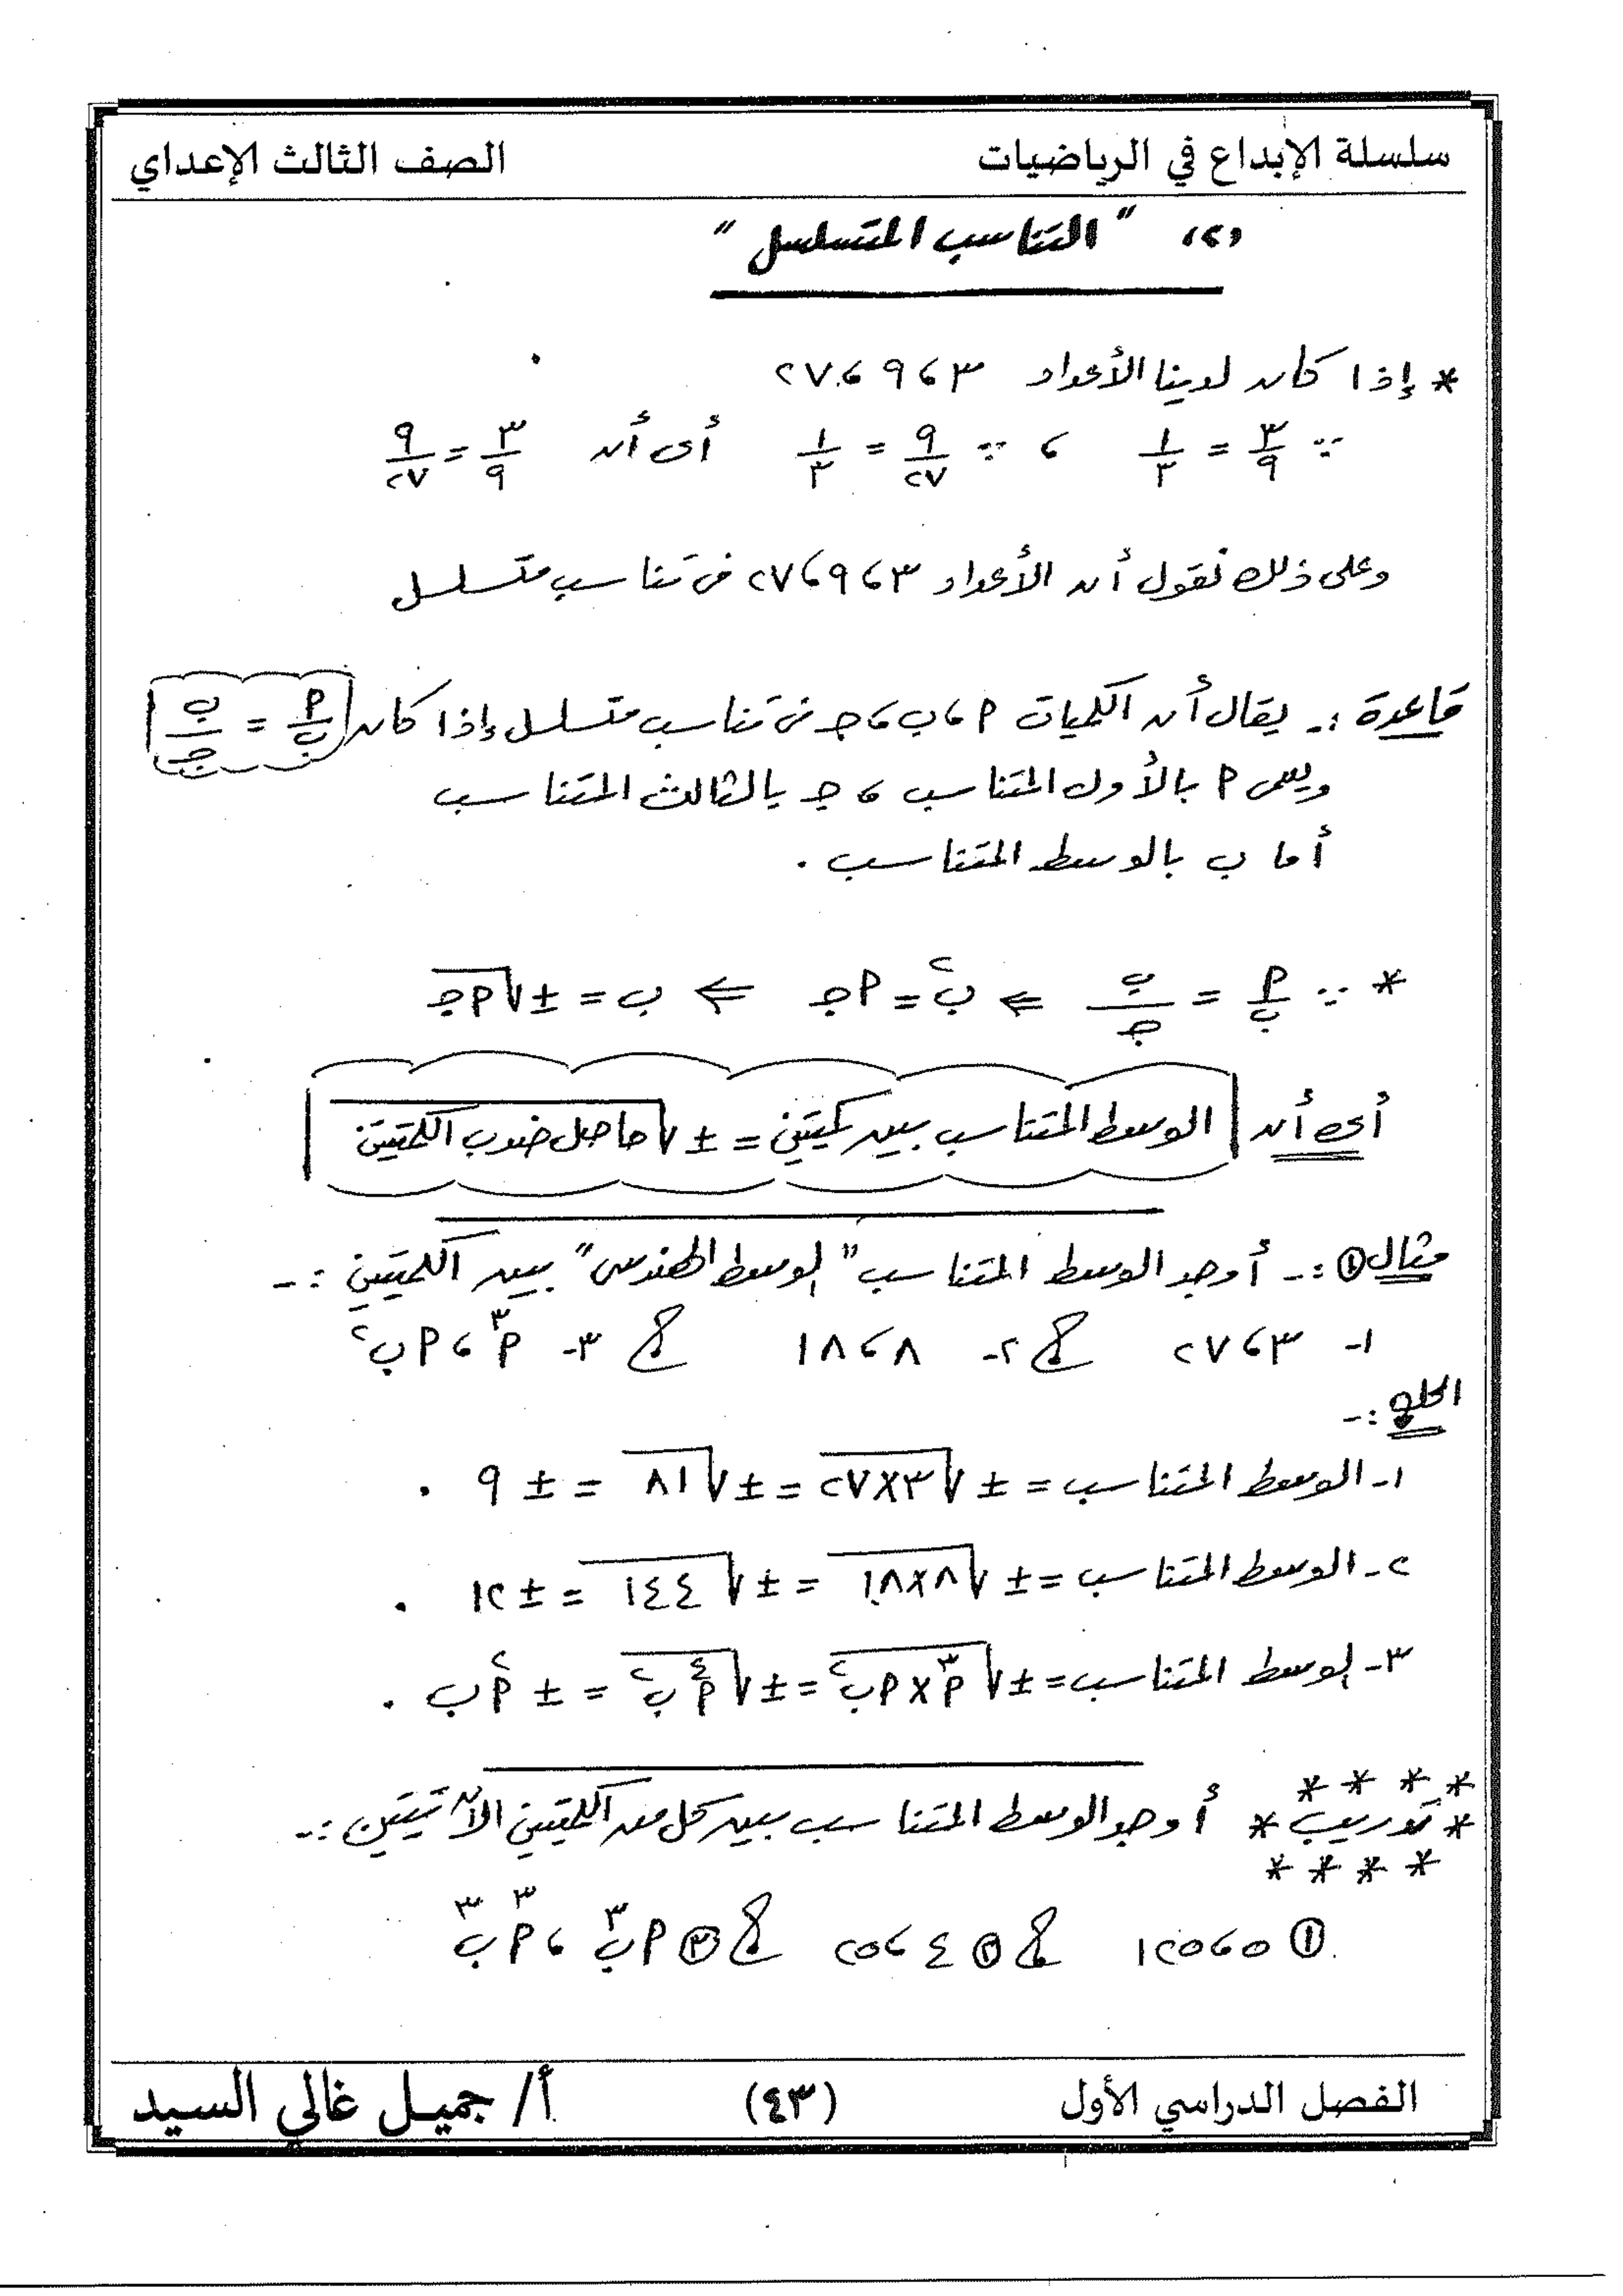 سلسلة الإبداع في الرياضيات
الصف الثالث الإعداي
(٢) "التناسب المتسلسل"
* إذا كان لدينا الأعداد ٣ ، ٩ ، ٢٧
∵ ٣/٩ = ١/٣ ، ∵ ٩/٢٧ = ١/٣ أى أن ٣/٩ = ٩/٢٧
وعلى ذلك نقول أن الأعداد ٣ ، ٩ ، ٢٧ فى تناسب متسلسل
قاعدة :- يقال أن الكميات أ ، ب ، جـ فى تناسب متسلسل إذا كان أ/ب = ب/جـ
ويسمى أ بالأول المتناسب ، جـ بالثالث المتناسب
أما ب بالوسط المتناسب .
* ∵ أ/ب = ب/جـ ⇐ ب² = أ جـ ⇐ ب = ± √(أ جـ)
أى أن الوسط المتناسب بين كميتين = ± √حاصل ضرب الكميتين
مثال ① :- أوجد الوسط المتناسب "الوسط الهندسى" بين الكميتين :-
١- ٣ ، ٢٧ ٢- ٨ ، ١٨ ٣- أ³ ، أ ب²
الحل :-
١- الوسط المتناسب = ± √(٣×٢٧) = ± √٨١ = ± ٩ .
٢- الوسط المتناسب = ± √(٨×١٨) = ± √١٤٤ = ± ١٢ .
٣- الوسط المتناسب = ± √(أ³ × أ ب²) = ± √(أ⁴ ب²) = ± أ² ب .
* * * *
* تدريب * أوجد الوسط المتناسب بين كل من الكميتين الآتيتين :-
* * * *
① ٥ ، ١٢٥ ② ٤ ، ٢٥ ③ أ ب³ ، أ³ ب³
الفصل الدراسي الأول
(٤٣)
أ/ جميل غالي السيد